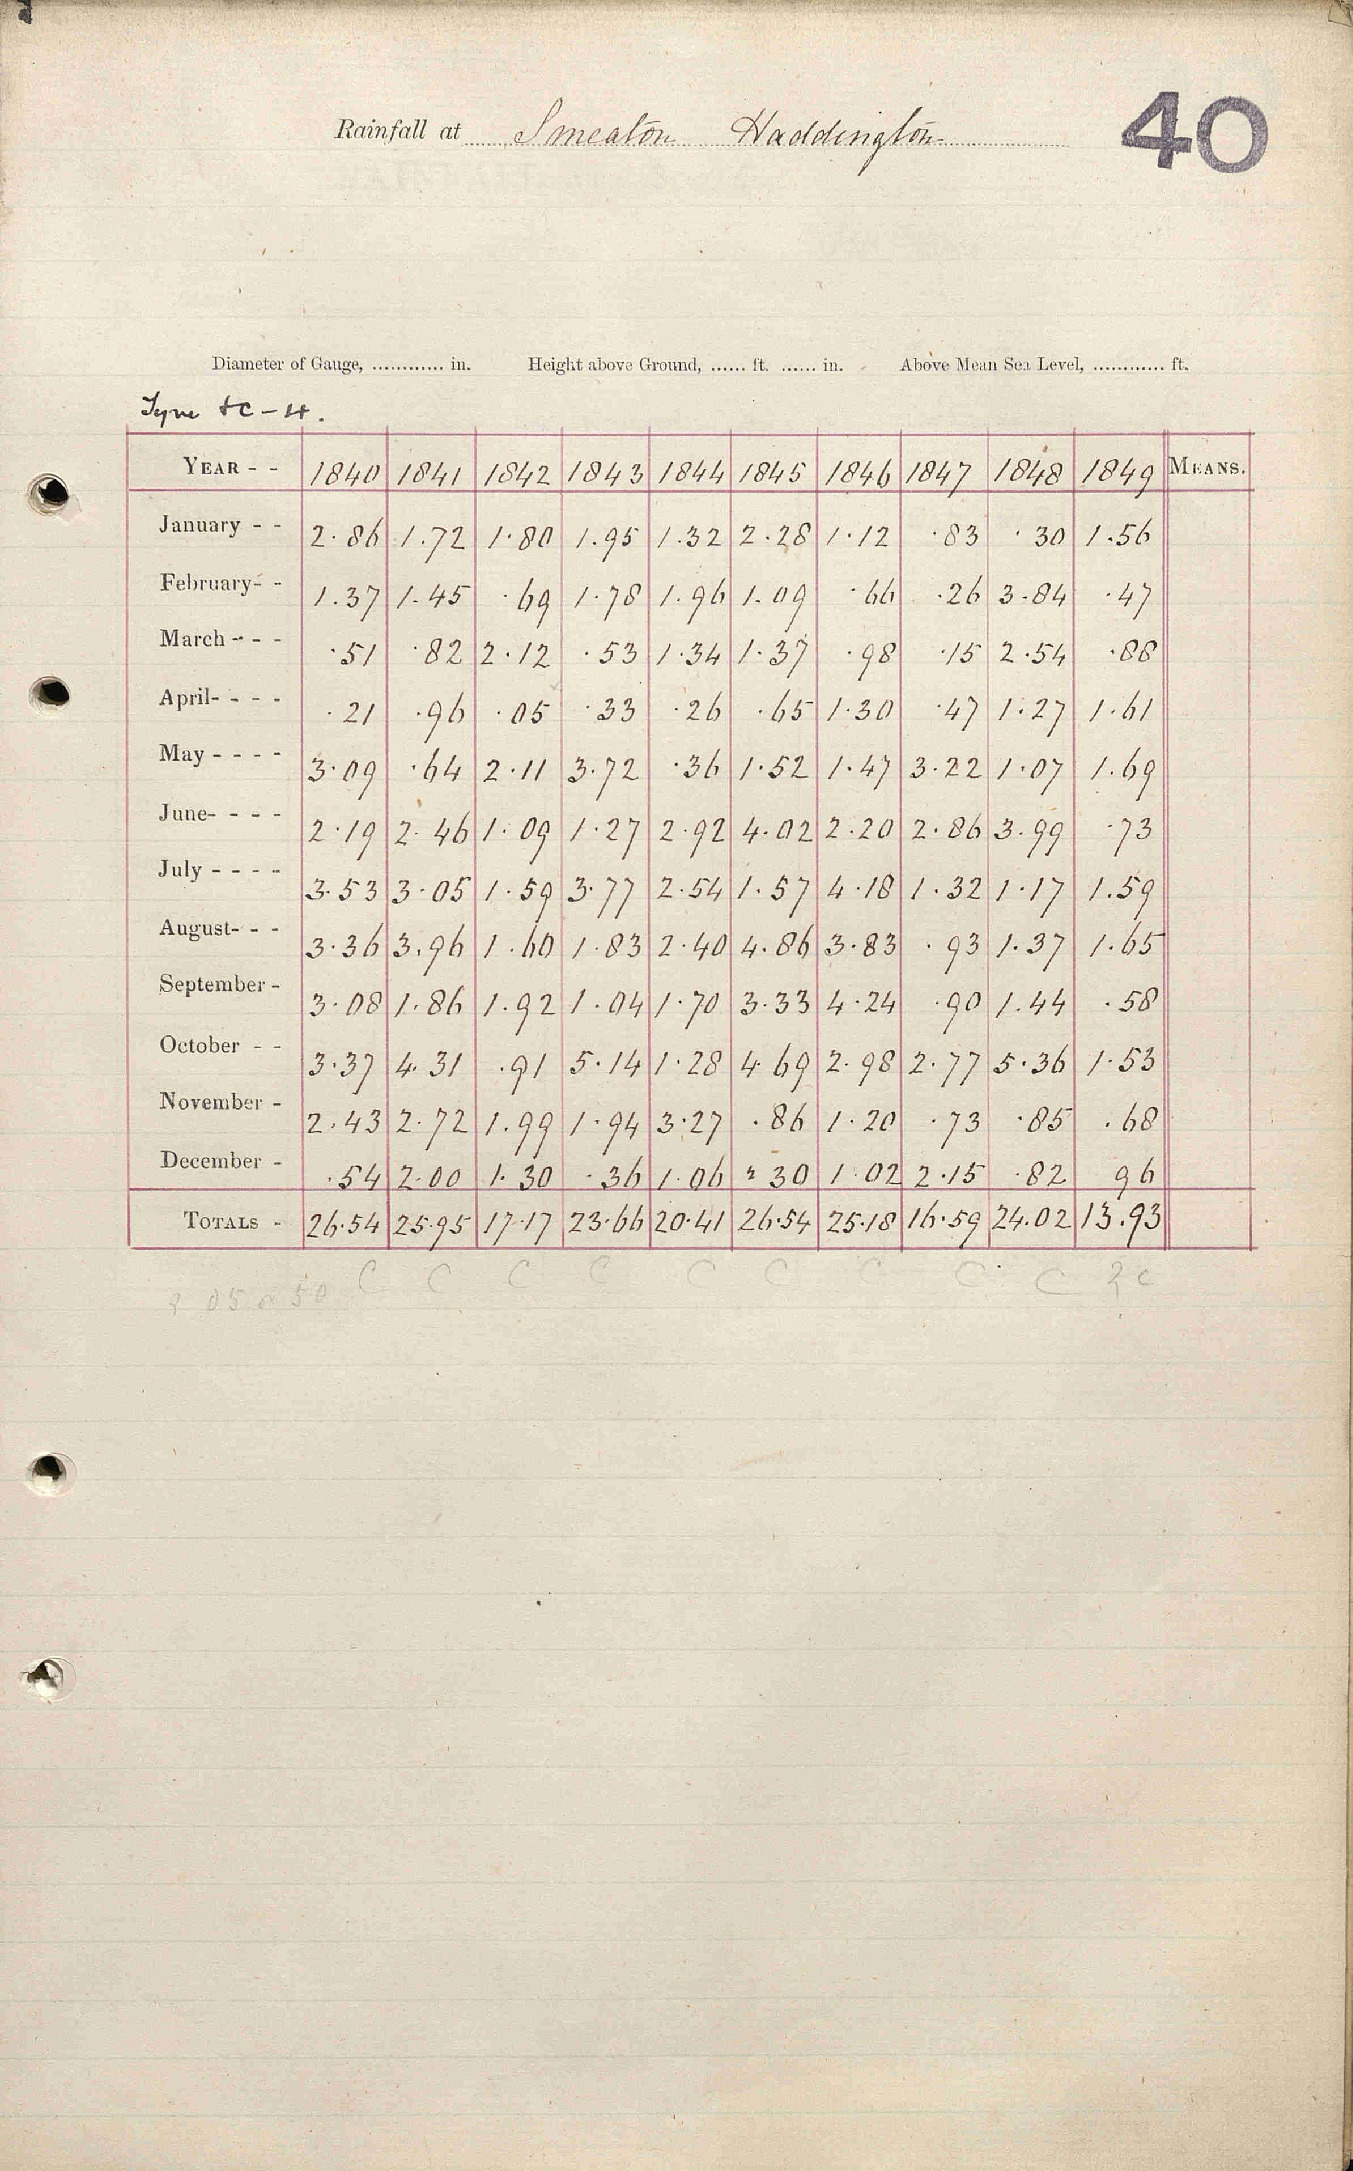 40
Rainfall at Smeaton Haddington
Diameter of Gauge, ............ in. Height above Ground, ...... ft. ...... in. Above Mean Sea Level, ............ ft.
Tyne &c - H.
YEAR - - 1840 1841 1842 1843 1844 1845 1846 1847 1848 1849 MEANS.
January - - 2.86 1.72 1.80 1.95 1.32 2.28 1.12 .83 .30 1.56
February - - 1.37 1.45 .69 1.78 1.96 1.09 .66 .26 3.84 .47
March - - - .51 .82 2.12 .53 1.34 1.37 .98 .15 2.54 .88
April - - - - .21 .96 .05 .33 .26 .65 1.30 .47 1.27 1.61
May - - - - 3.09 .64 2.11 3.72 .36 1.52 1.47 3.22 1.07 1.69
June - - - - 2.19 2.46 1.09 1.27 2.92 4.02 2.20 2.86 3.99 .73
July - - - - 3.53 3.05 1.59 3.77 2.54 1.57 4.18 1.32 1.17 1.59
August - - - 3.36 3.96 1.60 1.83 2.40 4.86 3.83 .93 1.37 1.65
September - 3.08 1.86 1.92 1.04 1.70 3.33 4.24 .90 1.44 .58
October - - 3.37 4.31 .91 5.14 1.28 4.69 2.98 2.77 5.36 1.53
November - 2.43 2.72 1.99 1.94 3.27 .86 1.20 .73 .85 .68
December - .54 2.00 1.30 .36 1.06 2 30 1.02 2.15 .82 96
TOTALS - 26.54 25.95 17.17 23.66 20.41 26.54 25.18 16.59 24.02 13.93
C C C C C C C C C ? c